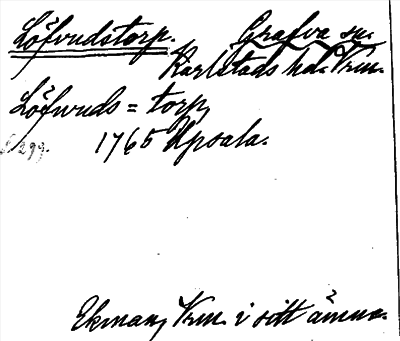 Löfvudstorp. Grafva sn.
Karlstads hd. Vrm.
Löfwuds=torp,
1765 Upsala.
s. 299.
Ekman, Vrm. i sitt ämne.